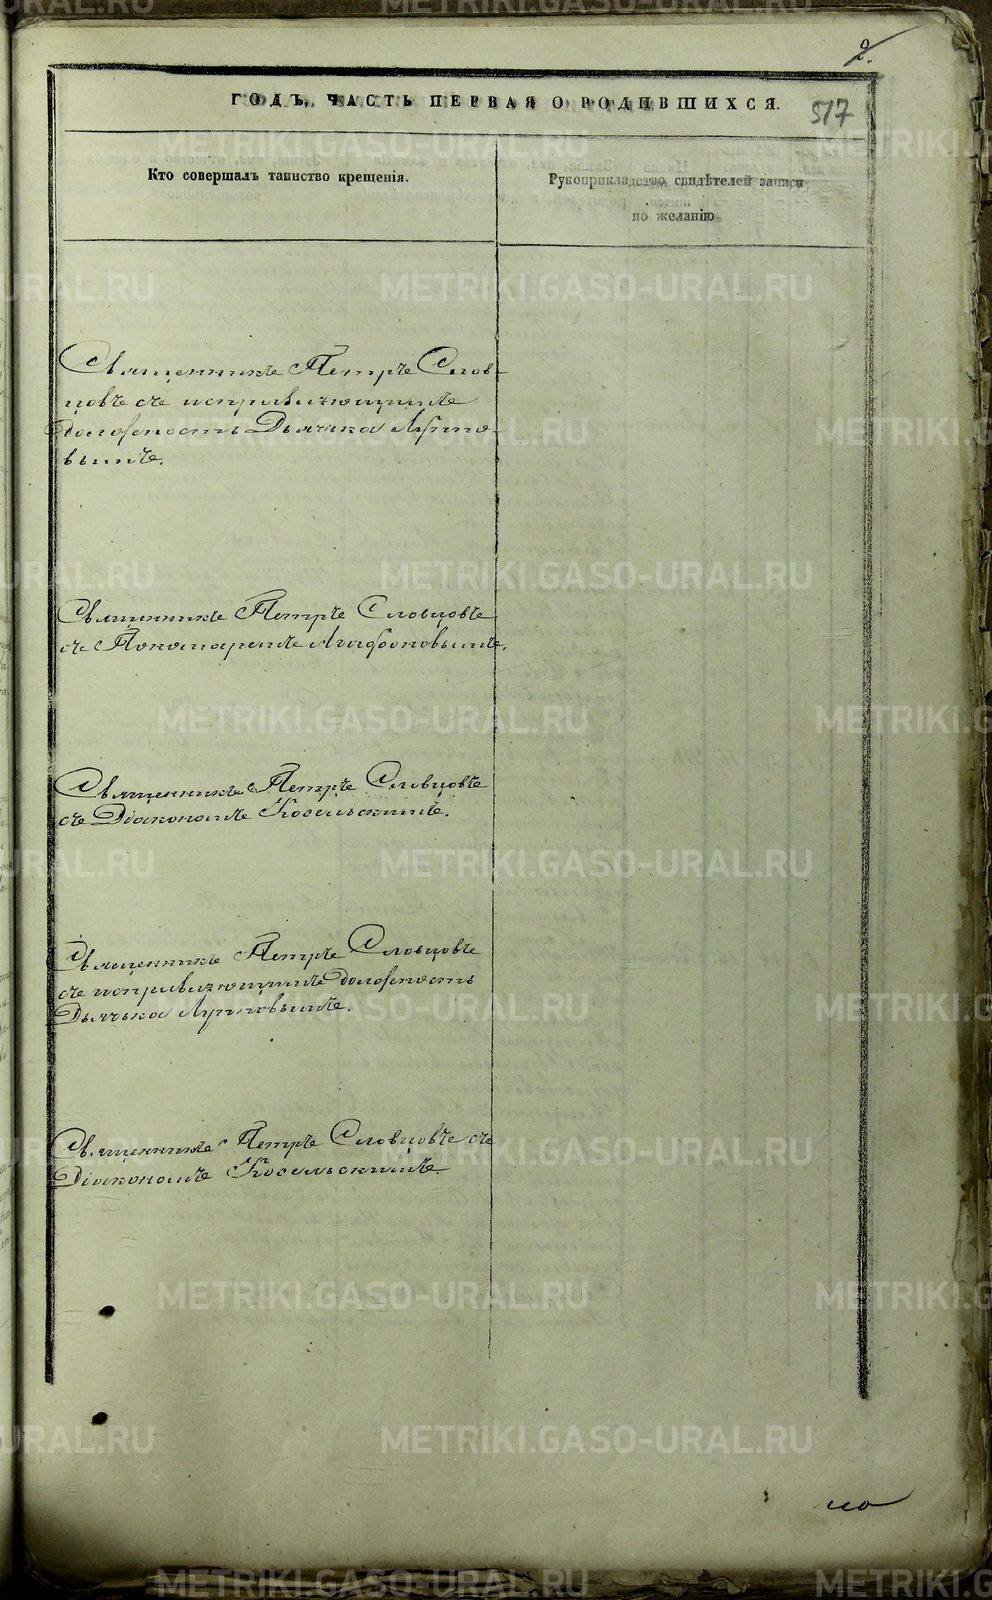 2.
ГОДЪ, ЧАСТЬ ПЕРВАЯ О РОДИВШИХСЯ.
517
Кто совершалъ таинство крещенія.
Рукоприкладство свидѣтелей записи
по желанію
Священникъ Петръ Слов-
цовъ съ исправляющимъ
должность Дьячка Луппо-
вымъ.
Священникъ Петръ Словцовъ
съ Пономаремъ Агафоновымъ.
Священникъ Петръ Словцовъ
съ Діакономъ Косельскимъ.
Священникъ Петръ Словцовъ
съ исправляющимъ должность
Дьячька Лупповымъ.
Священникъ Петръ Словцовъ съ
Діакономъ Косельскимъ
METRIKI.GASO-URAL.RU